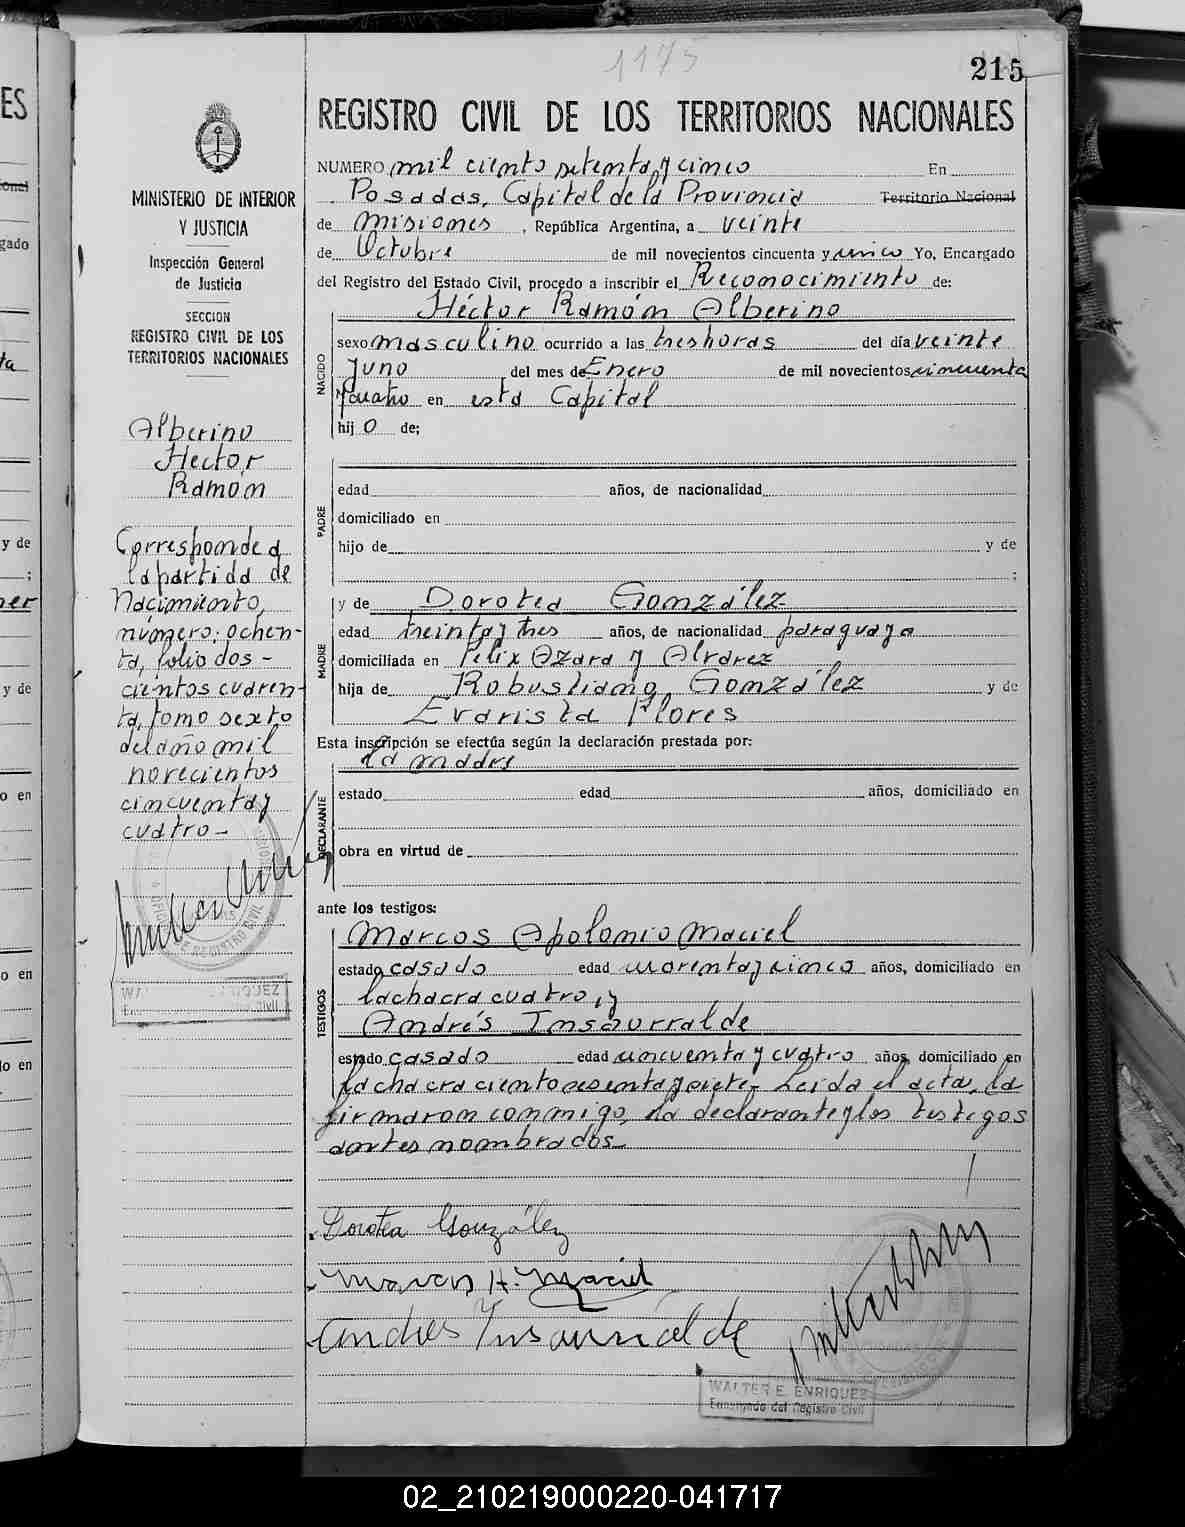 1175
215
REGISTRO CIVIL DE LOS TERRITORIOS NACIONALES
NUMERO mil ciento setenta y cinco En
Posadas, Capital de la Provincia Territorio Nacional
de Misiones, República Argentina, a veinte
de Octubre de mil novecientos cincuenta y cinco Yo, Encargado
del Registro del Estado Civil, procedo a inscribir el Reconocimiento de:
Héctor Ramón Alberino
NACIDO
sexo masculino ocurrido a las tres horas del día veinte
y uno del mes de Enero de mil novecientos cincuenta
y cuatro en esta Capital
hijo de;
PADRE
edad años, de nacionalidad
domiciliado en
hijo de y de
;
MADRE
y de Dorotea González
edad treinta y tres años, de nacionalidad paraguaya
domiciliada en Félix Azara y Alvarez
hija de Robustiano González y de
Evarista Flores
Esta inscripción se efectúa según la declaración prestada por:
la madre
DECLARANTE
estado edad años, domiciliado en
obra en virtud de
ante los testigos:
TESTIGOS
Marcos Apolonio Maciel
estado casado edad cuarenta y cinco años, domiciliado en
la chacra cuatro, y
Andrés Insaurralde
estado casado edad cincuenta y cuatro años, domiciliado en
la chacra ciento sesenta y siete. Leída el acta, la
firmaron conmigo, la declarante y los testigos
antes nombrados.
Dorotea González
Marcos A. Maciel
Andres Insaurralde
WALTER E. ENRIQUEZ
Encargado del Registro Civil
MINISTERIO DE INTERIOR
Y JUSTICIA
Inspección General
de Justicia
SECCION
REGISTRO CIVIL DE LOS
TERRITORIOS NACIONALES
Alberino
Hector
Ramón
Corresponde a
la partida de
Nacimiento,
número: ochen-
ta, folio dos-
cientos cuaren-
ta, tomo sexto
del año mil
novecientos
cincuenta y
cuatro-
02_210219000220-041717